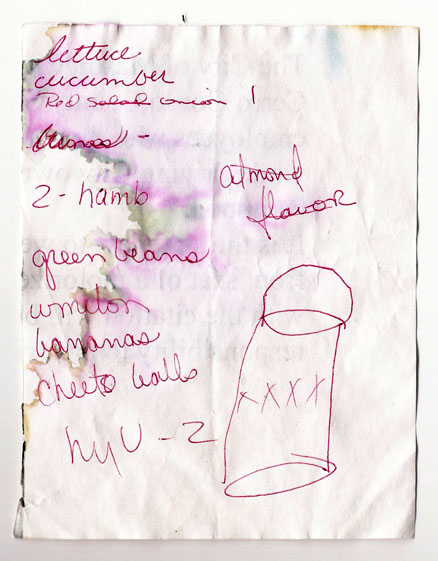 lettuce
cucumber
Red Salad onion 1
2 - hamb
almond
flavor
green beans
wmelon
bananas
cheeto balls
XXXX
hyU - 2